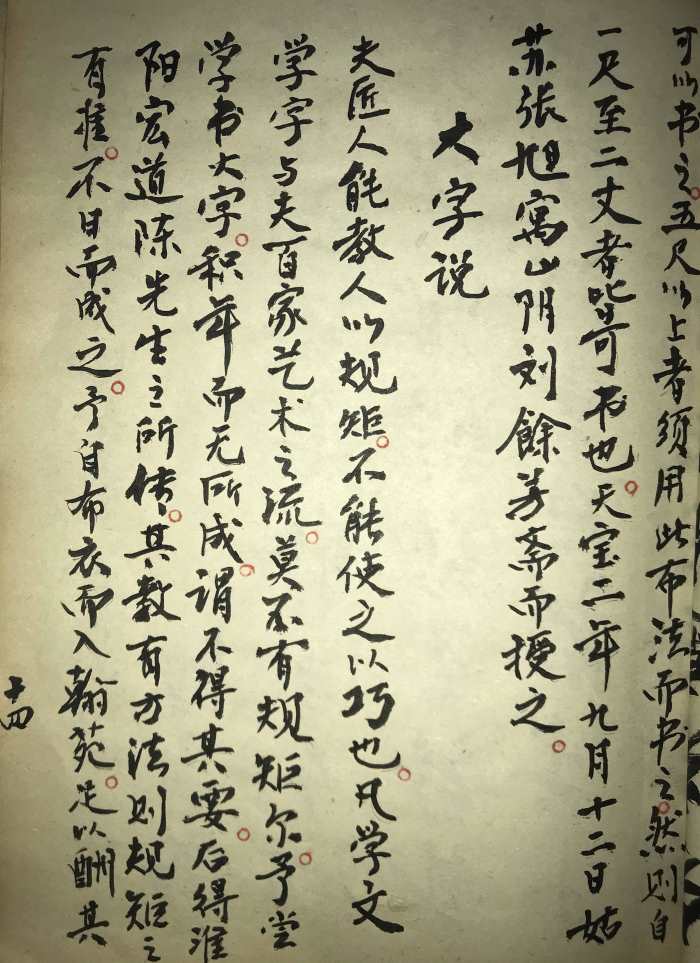 可以书之。五尺以上者须用此布法而书之。然则自
一尺至二丈者皆可书也。天宝二年九月十二日姑
苏张旭寓山阴刘餘芳斋而授之。
大字说
夫匠人能教人以规矩。不能使之以巧也。凡学文
学字与夫百家艺术之流。莫不有规矩尔。予尝
学书大字。积年而无所成。谓不得其要。后得淮
阳宏道陈先生之所传。其教有方法则规矩之
有推。不日而成之。予自布衣而入翰苑。足以酬其
十四